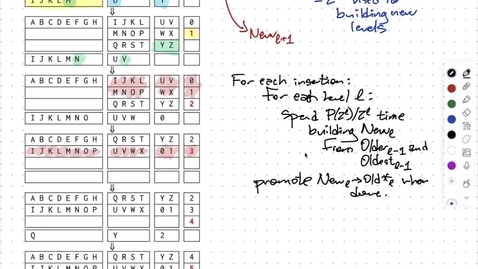 I J K L M
A B C D E F G H I J K L U V 0
M N O P W X 1
Q R S T Y Z
I J K L M N U V
A B C D E F G H I J K L U V 0
M N O P W X 1
Q R S T Y Z 2
I J K L M N O P U V W 0
A B C D E F G H Q R S T Y Z 2
I J K L M N O P U V W X 0 1 3
A B C D E F G H Q R S T Y Z 2
I J K L M N O P U V W X 0 1 3
4
Q Y 2
A B C D E F G H Q R S T Y Z 4
I J K L M N O P U V W X 0 1 5
building new
levels
New l+1
For each insertion:
For each level l:
Spend P(2^l)/2^l time
building New l
From Older l-1 and
Oldest l-1
promote New l → Old* l when
done.